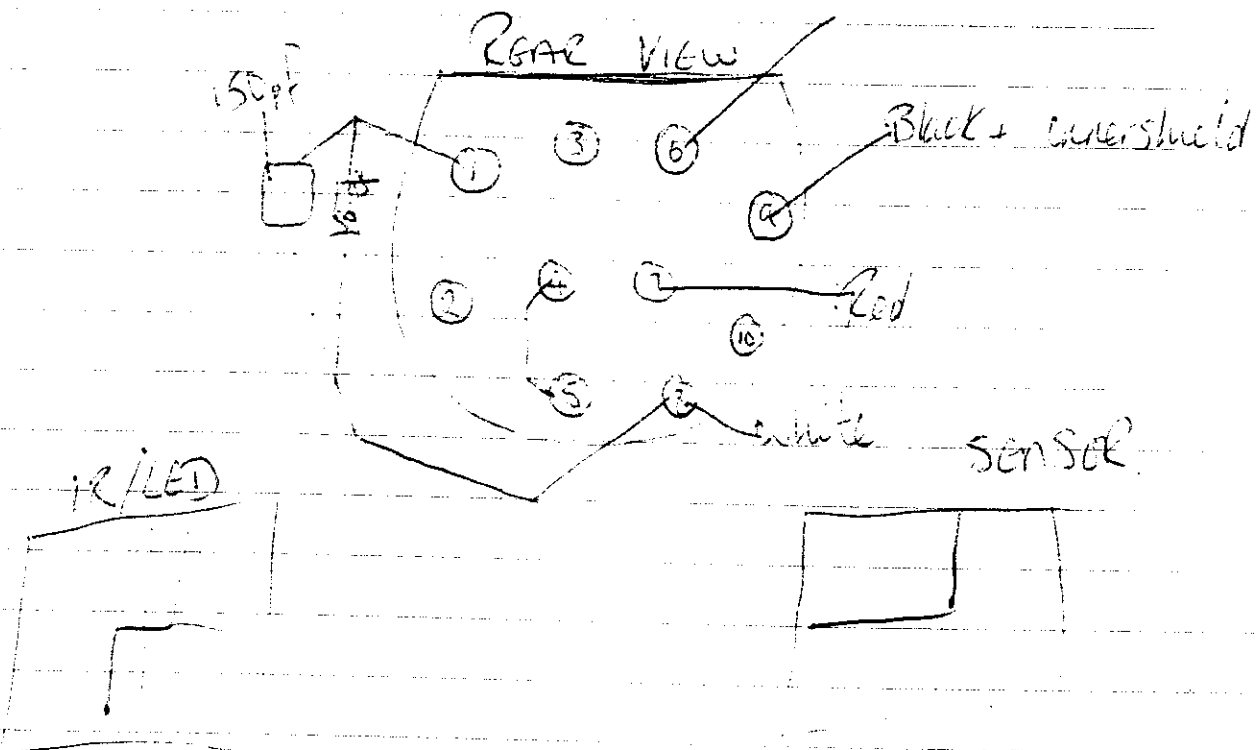 REAR VIEW
150pf
③ ⑥
Black + innershield
①
⑨
② ④ ⑦ Red
⑩
⑤
white
SENSOR
iR/LED